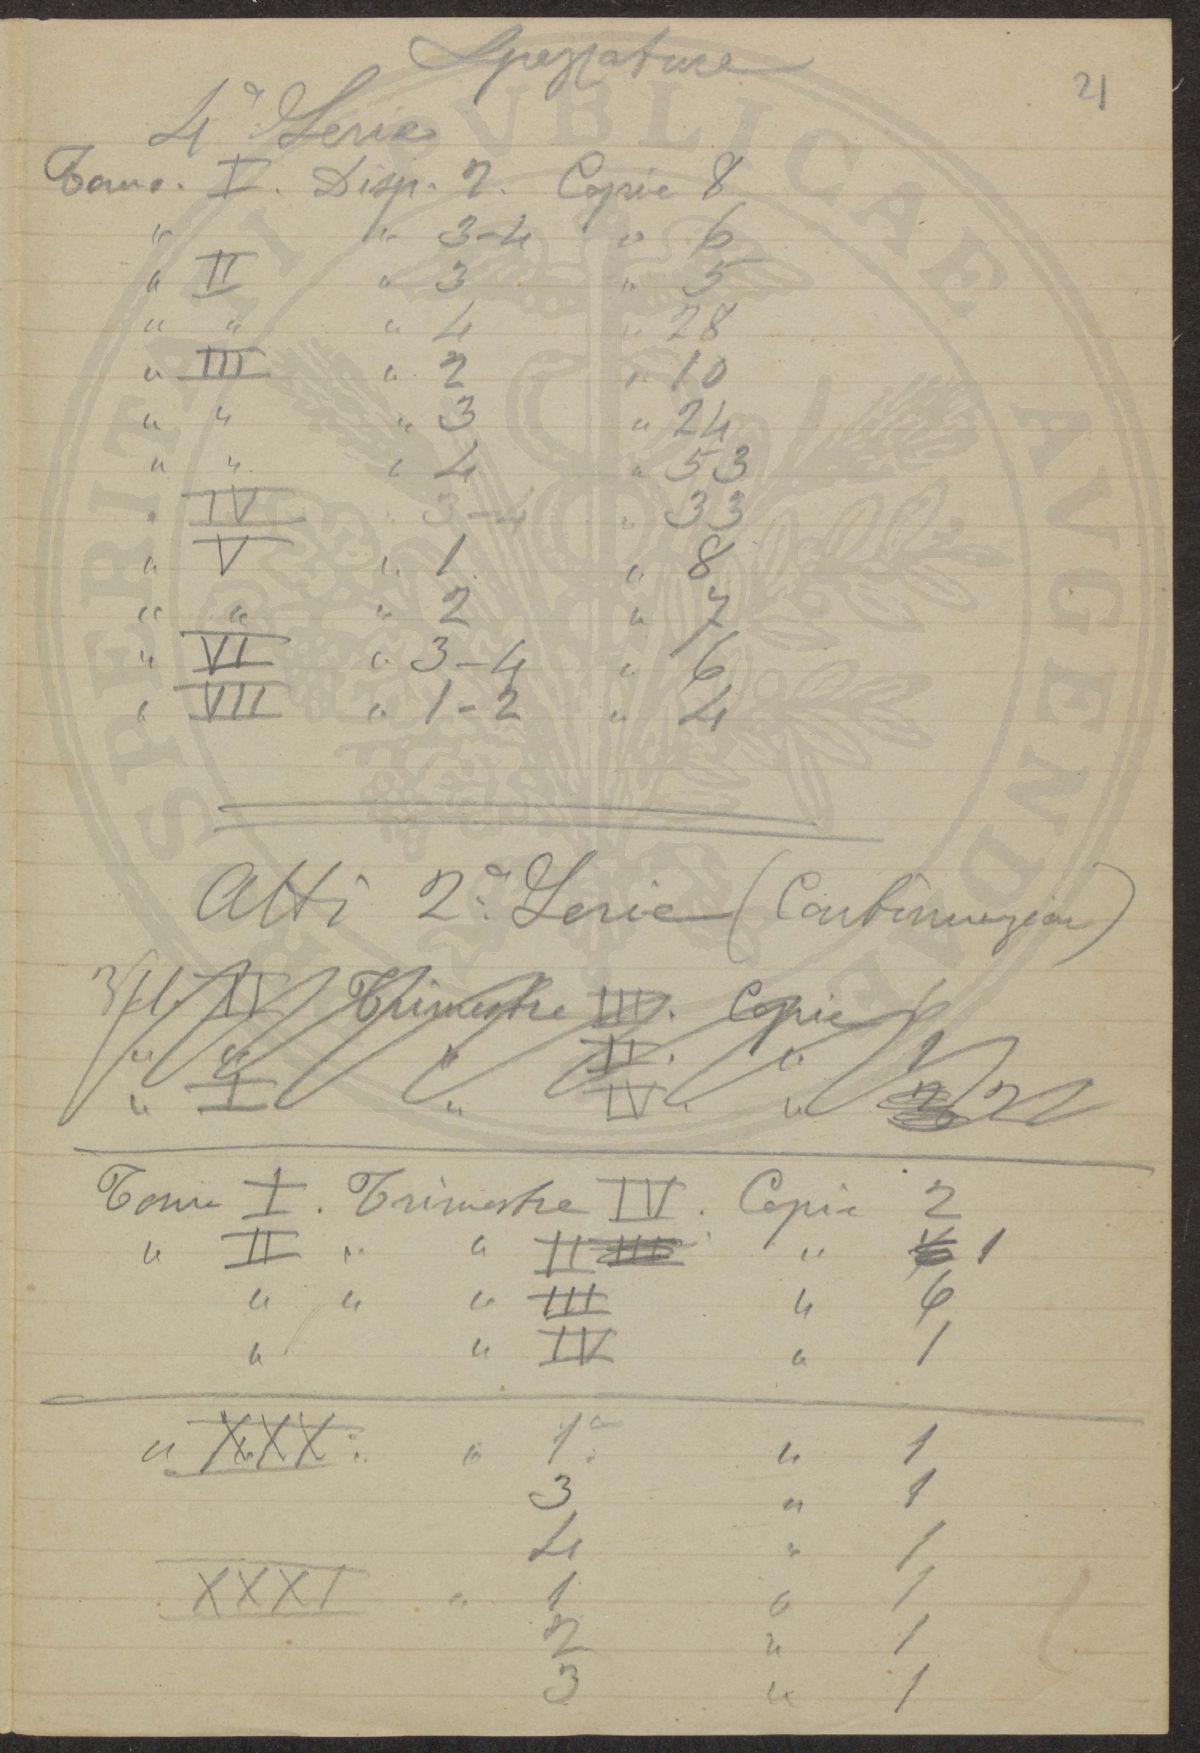 Spezzature
21
4ª Serie
Tomo. I. Disp. 2. Copie 8
" " 3-4 " 6
" II " 3 " 5
" " " 4 " 28
" III " 2 " 10
" " " 3 " 24
" " " 4 " 53
" IV " 3-4 " 33
" V " 1 " 8
" " " 2 " 7
" VI " 3-4 " 6
" VII " 1-2 " 4
Atti 2ª Serie (Continuazione)
Trimestre III. Copie 6
" " " II. " 1
" I " IV. " 2
Tomo I. Trimestre IV. Copie 2
" II " " II " 1
" " " III " 6
" " IV " 1
" XXX: " 1ª " 1
3 " 1
4 " 1
XXXI " 1 " 1
2 " 1
3 " 1
SPERITATI PVBLICAE AVGENDAE